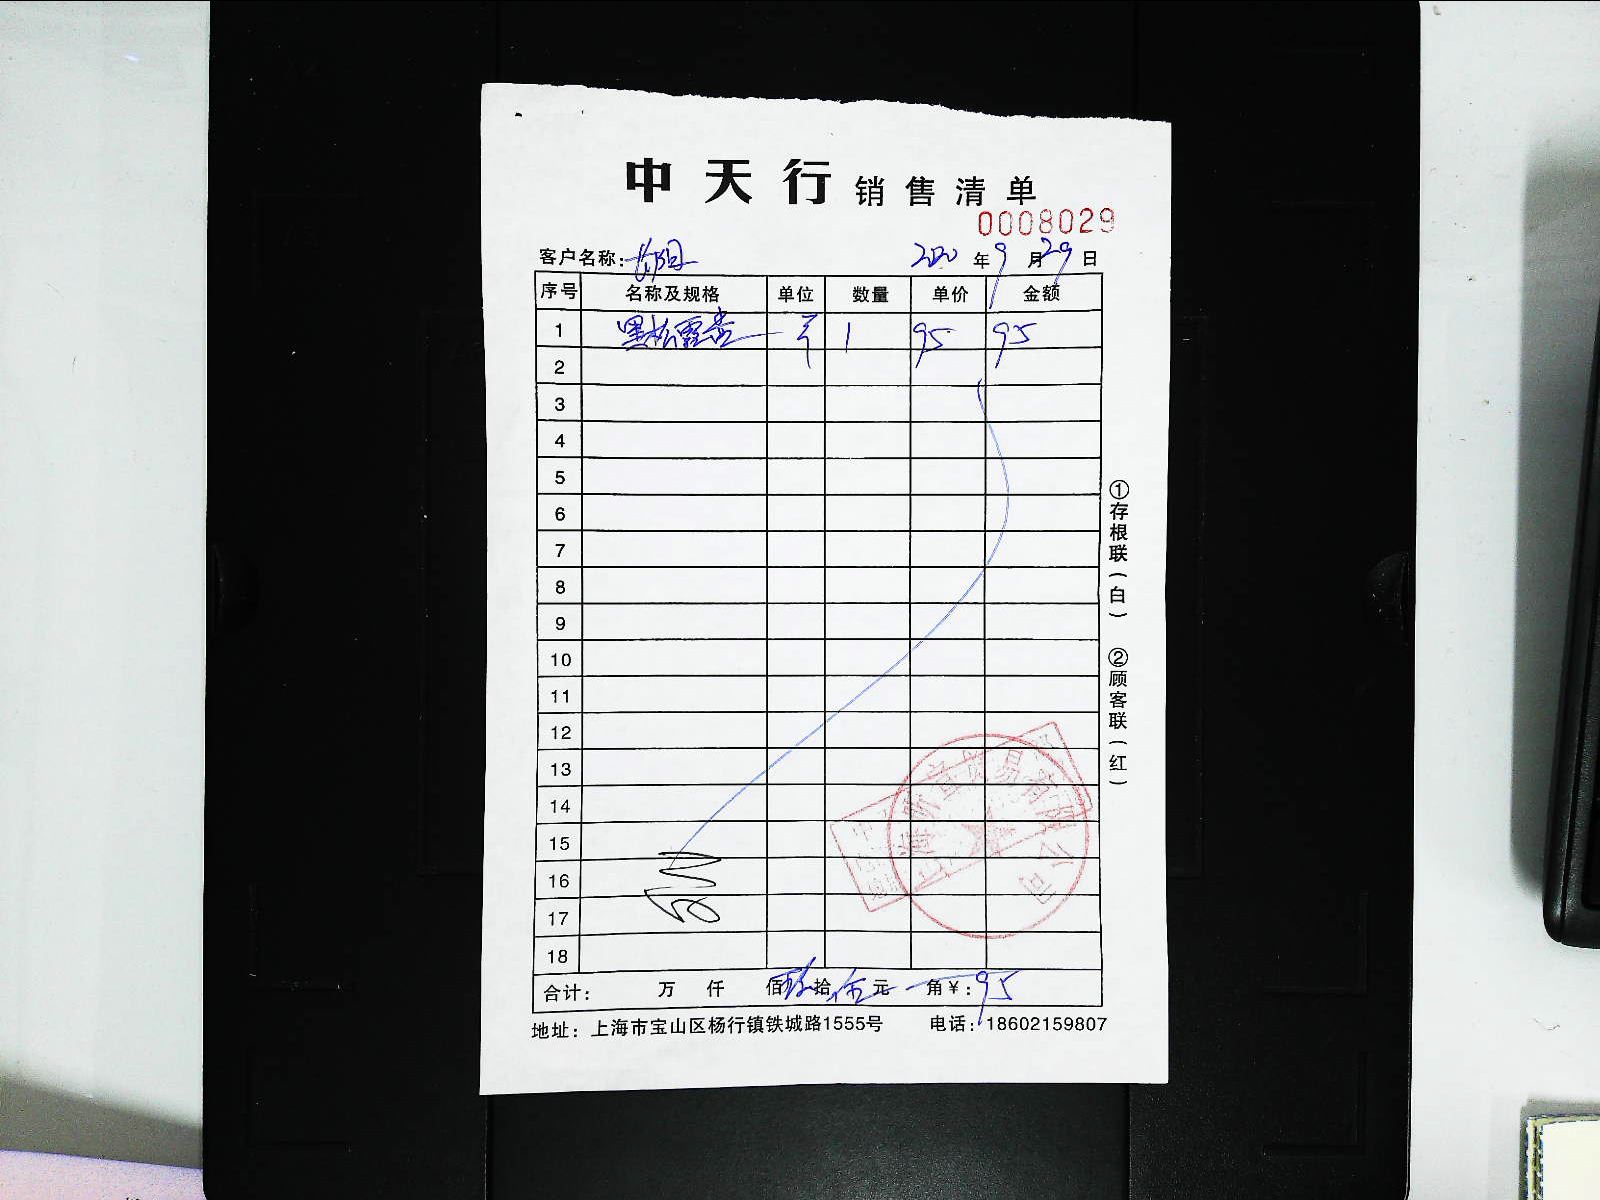 中天行销售清单
0008029
客户名称: 2020年9月29日
序号 名称及规格 单位 数量 单价 金额
1 黑松露酱 1 95 95
2
3
4
5
6
7
8
9
10
11
12
13
14
15
16
17
18
合计: 万 仟 佰玖拾伍元 角¥:95
地址:上海市宝山区杨行镇铁城路1555号 电话:18602159807
①存根联(白) ②顾客联(红)
贸易有限公司